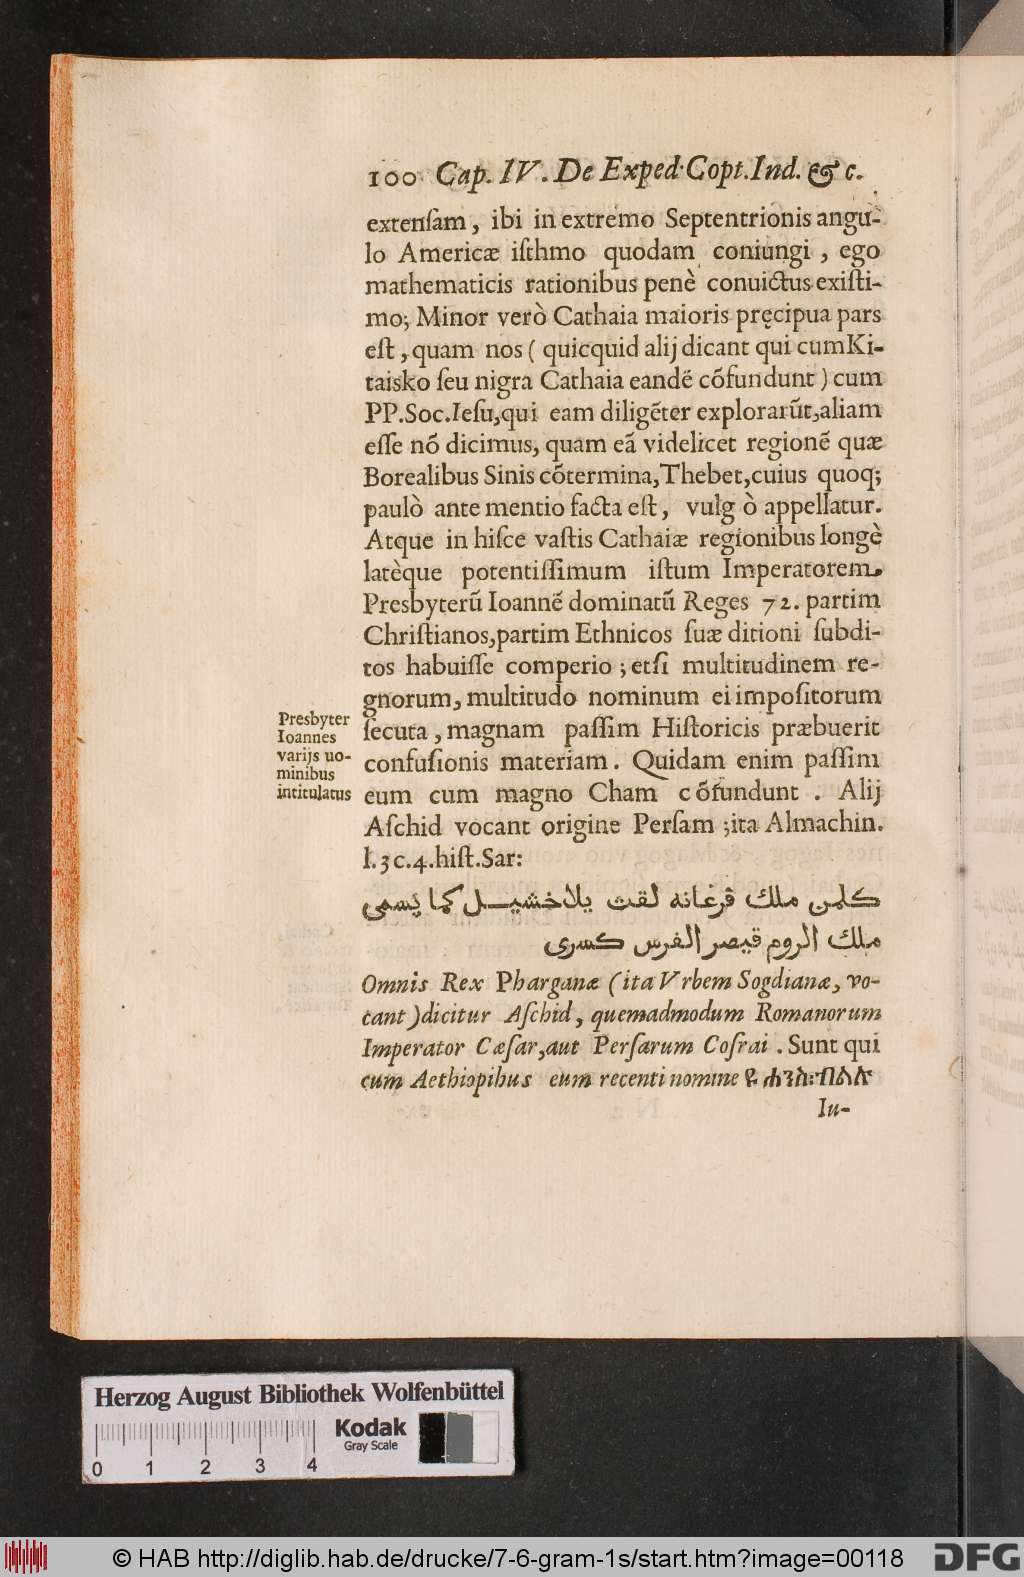 100 Cap. IV. De Exped. Copt. Ind. & c.
extenſam, ibi in extremo Septentrionis angu-
lo Americæ iſthmo quodam coniungi, ego
mathematicis rationibus penè conuictus exiſti-
mo; Minor verò Cathaia maioris pręcipua pars
eſt, quam nos ( quicquid alij dicant qui cumKi-
taisko ſeu nigra Cathaia eandẽ cõfundunt ) cum
PP.Soc.Ieſu,qui eam diligẽter explorarũt,aliam
eſſe nõ dicimus, quam eã videlicet regionẽ quæ
Borealibus Sinis cõtermina,Thebet,cuius quoq;
paulò ante mentio facta eſt, vulg ò appellatur.
Atque in hiſce vaſtis Cathaiæ regionibus longè
latèque potentiſſimum iſtum Imperatorem
Presbyterũ Ioannẽ dominatũ Reges 72. partim
Chriſtianos,partim Ethnicos ſuæ ditioni ſubdi-
tos habuiſſe comperio ; etſi multitudinem re-
gnorum, multitudo nominum ei impoſitorum
ſecuta, magnam paſſim Hiſtoricis præbuerit
confuſionis materiam. Quidam enim paſſim
eum cum magno Cham c õfundunt . Alij
Aſchid vocant origine Perſam ;ita Almachin.
l.3 c.4.hiſt.Sar:
Presbyter
Ioannes
varijs uo-
minibus
intitulatus
كلمن ملك فرغانه لقت يلاخشيل كما يسمى
ملك الروم قيصر الفرس كسرى
Omnis Rex Pharganæ (ita Vrbem Sogdianæ, vo-
cant )dicitur Aſchid, quemadmodum Romanorum
Imperator Cæſar,aut Perſarum Coſrai . Sunt qui
cum Aethiopibus eum recenti nomine
Iu-
Herzog August Bibliothek Wolfenbüttel
Kodak
Gray Scale
0 1 2 3 4
© HAB http://diglib.hab.de/drucke/7-6-gram-1s/start.htm?image=00118
DFG